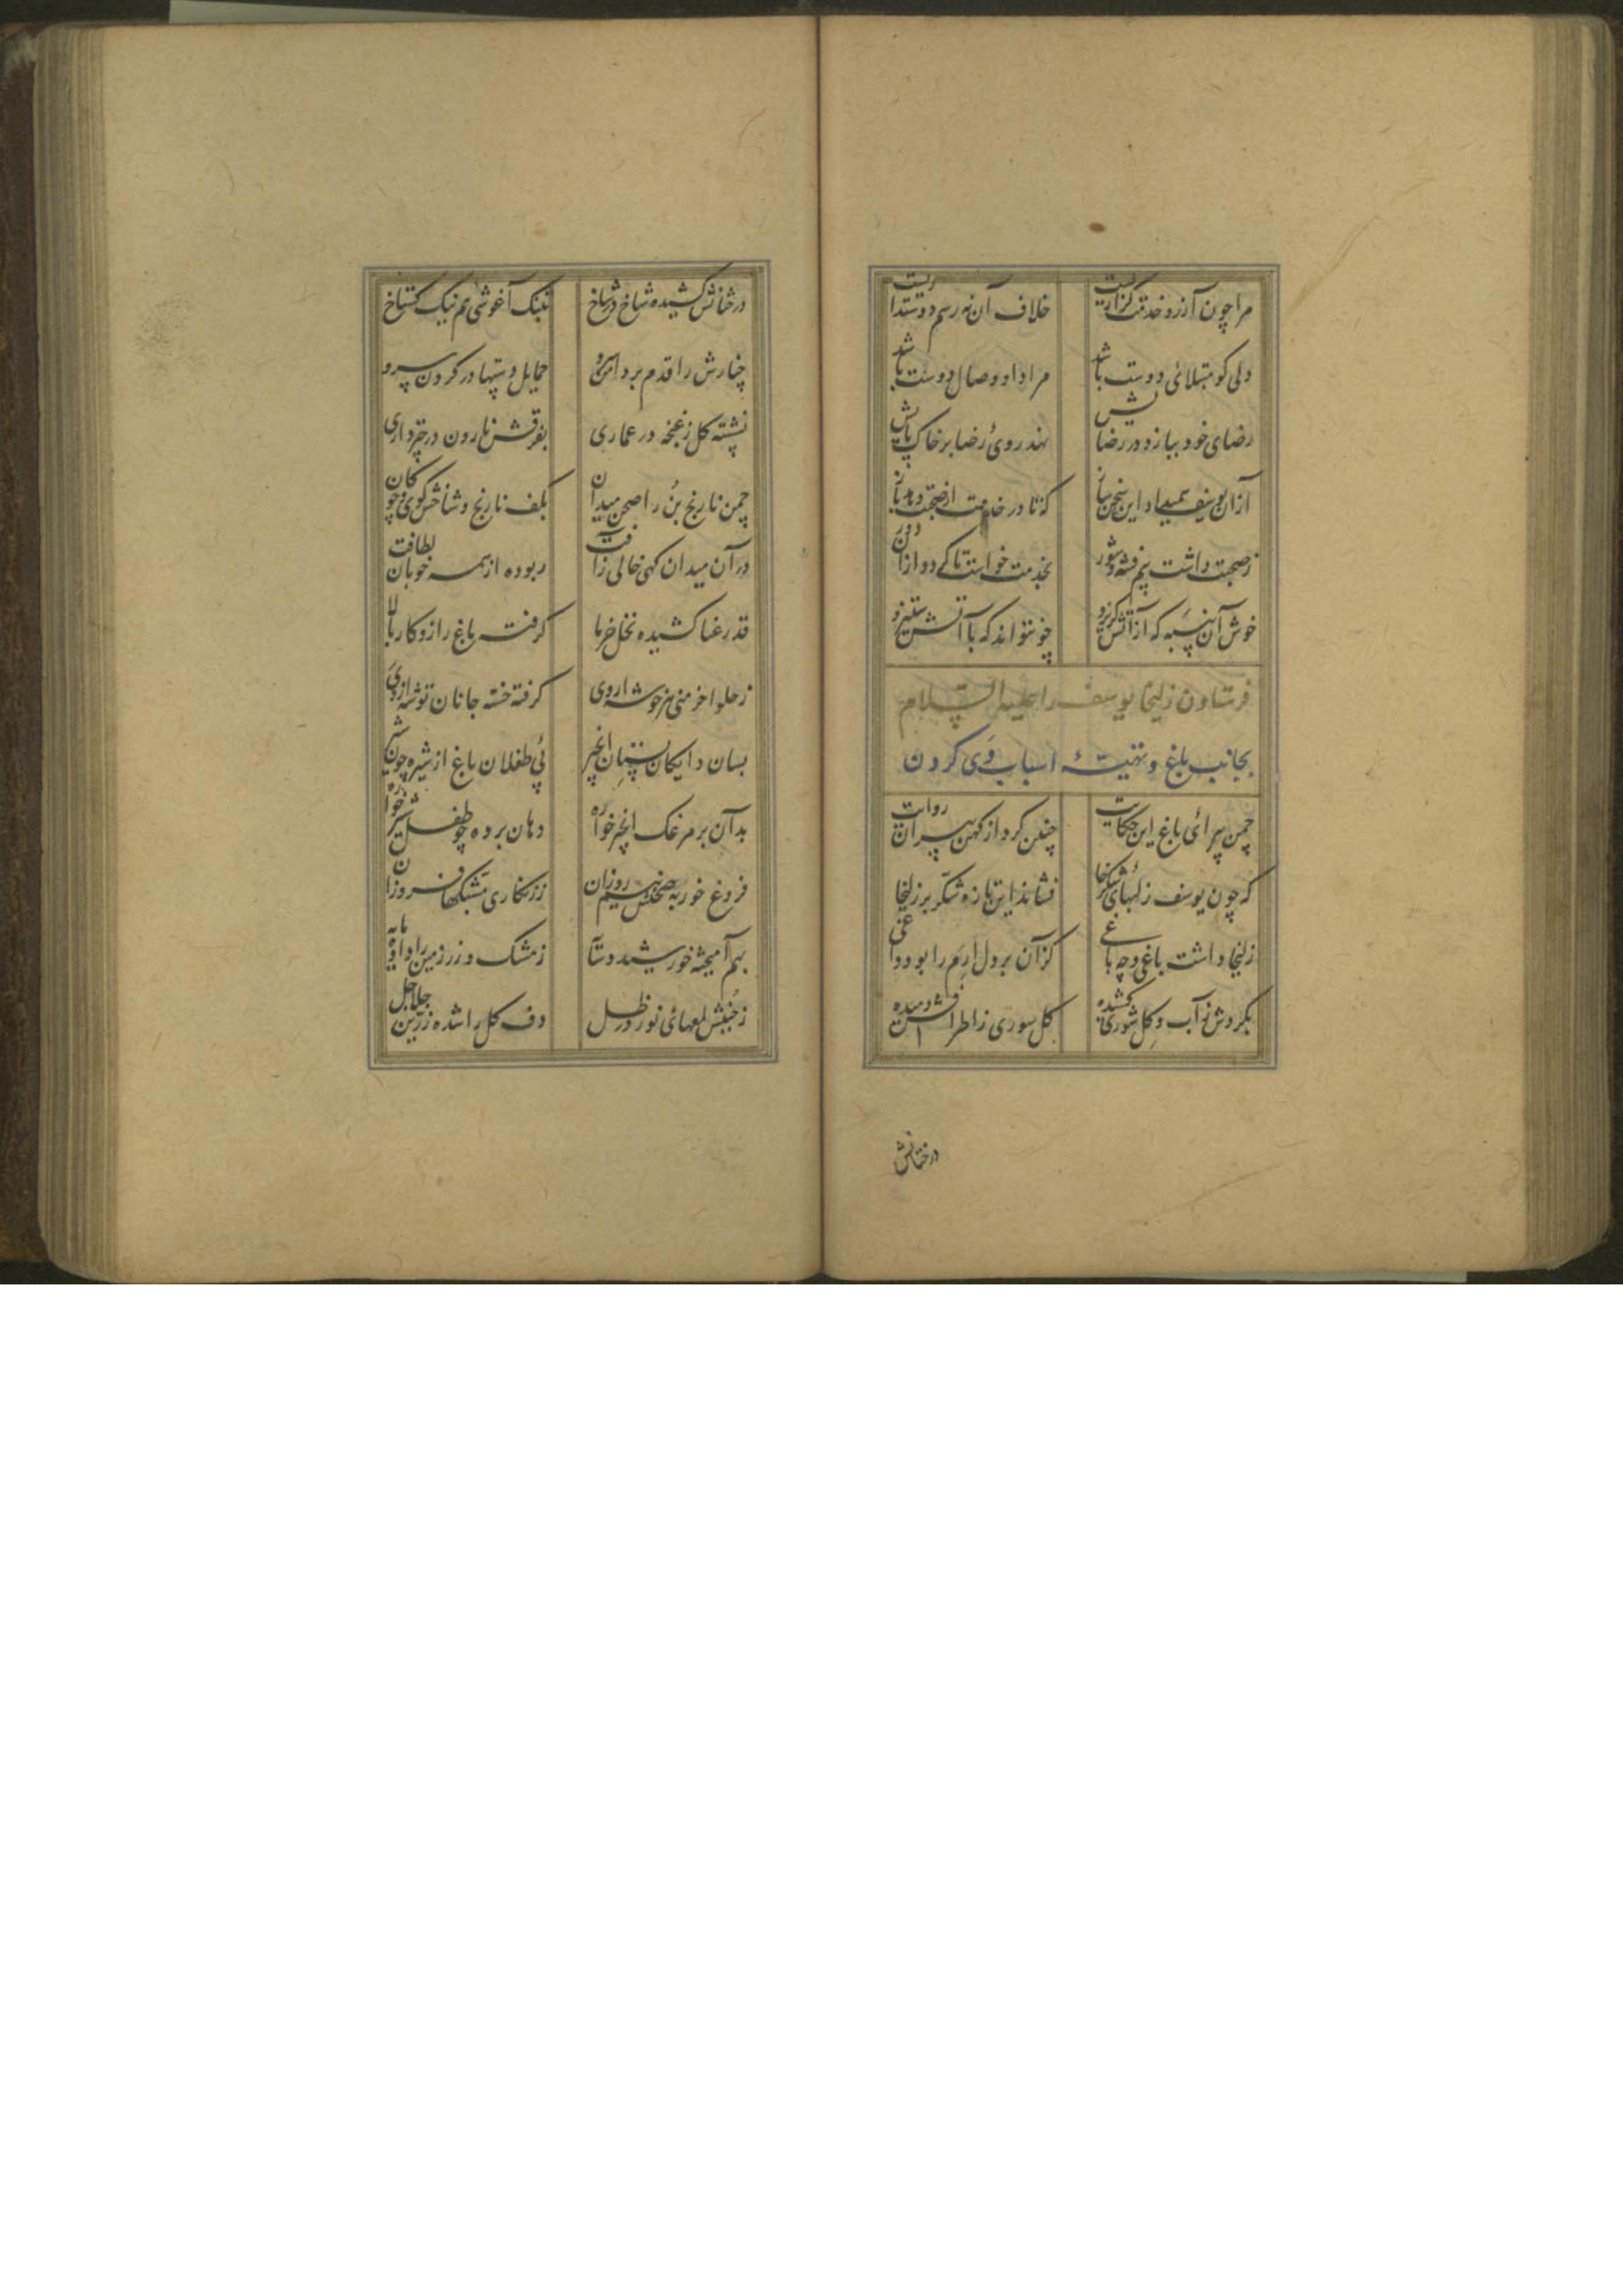 مرا چون آرزو خدمت گزاریست خلاف آن نه رسم دوستداریست
دلی کو مبتلائی دوست باشد مراد او وصال دوست باشد
رضای خود ببازد در رضایش نهد روئ رضا بر خاک پایش
از آن یوسف همیداد این سخن ساز که تا در خدمت از صحبت رهد باز
ز صحبت داشت بیم فتنه و شور بخدمت خواست تا کے دو از آن دور
خوش آن پنبه که از آتش گریزد چو نتواند که با آتش ستیزد
فرستادن زلیخا یوسف را علیه السلام
بجانب باغ و تهیئهٔ اسباب وی کردن
چمن پیرائی باغ این حکایت چنین کرد از کهن پیران روایت
که چون یوسف ز لبهای شکرخا فشاند این تازه شکر بر زلیخا
زلیخا داشت باغی و چه باغی کز آن بر دل ارم را بود داغی
بگردش ز آب و گل شوری کشیده گل سوری ز اطرافش دمیده
درختانش
درختانش کشیده شاخ در شاخ بتنگ آغوشی هم نیک گستاخ
چنارش را قدم بر دامن سرو حمایل دستها در گردن سرو
نشسته گل ز غنچه در عماری بفرقش نارون در چترداری
چمن نارنج بن را صحن میدان بکف نارنج و شاخش گوی و چوگان
در آن میدان کهی خالی ز آفت ربوده از همه خوبان لطافت
قد رعنا کشیده نخل خرما گرفته باغ را زو کار بالا
ز حلوا خرمنی هر خوشه از وی گرفته خسته جانان توشه از وی
بسان دایگان پستان انجیر پئ طفلان باغ از شیره چون شیر
بدآن بر مرغک انجیر خواره دهان برده چو طفل شیر خواره
فروغ خور به صحنش نیم روزان ز زنگاری مشبکها فروزان
بهم آمیخته خورشید و سایه ز مشک و زر زمین را داده مایه
ز جنبش لمعهای نور در ظل دف گل را شده زرین جلاجل